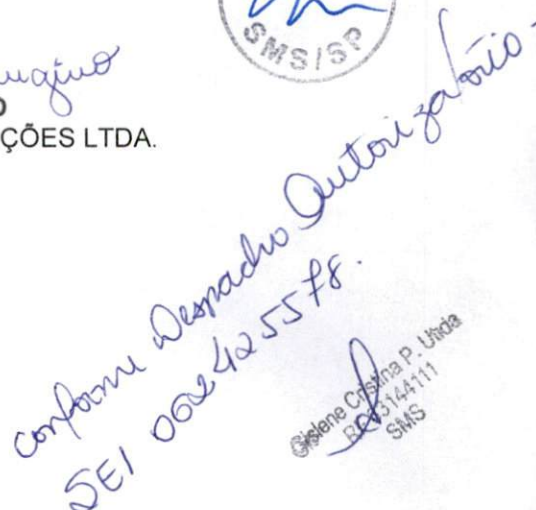 SMS/SP
ÇÕES LTDA.
conforme Despacho Autorizatório -
SEI 062425578.
Gislene Cristina P. Utida
3144111
SMS